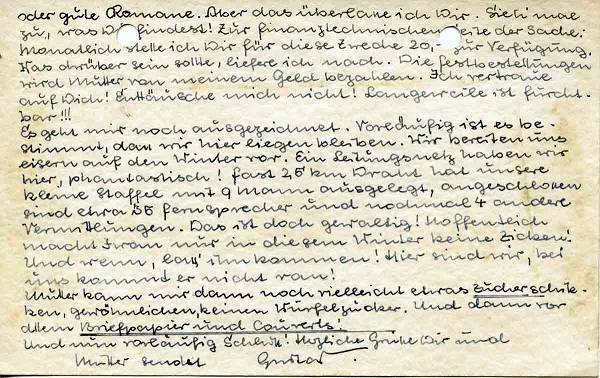 oder gute Romane. Aber das überlasse ich Dir. Sieh mal
zu, was Du findest! Zur finanztechnischen Seite der Sache:
Monatlich stelle ich Dir für diese Zwecke 20,- zur Verfügung.
Was drüber sein sollte, liefere ich nach. Die Festbestellungen
wird Mutter von meinem Geld bezahlen. Ich vertraue
auf Dich! Enttäusche mich nicht! Langeweile ist furcht-
bar!!!
Es geht mir noch ausgezeichnet. Vorläufig ist es be-
stimmt, daß wir hier liegen bleiben. Wir bereiten uns
eisern auf den Winter vor. Ein Leitungsnetz haben wir
hier, phantastisch! Fast 25 km Draht hat unsere
kleine Staffel mit 9 Mann ausgelegt, angeschlossen
sind etwa 35 Fernsprecher und nochmal 4 andere
Vermittlungen. Das ist doch gewaltig! Hoffentlich
macht Iwan nur in diesem Winter keine Zicken!
Und wenn, laß' ihn kommen! Hier sind wir, bei
uns kommt er nicht ran!
Mutter kann mir dann noch vielleicht etwas Zucker schik-
ken, gewöhnlichen, keinen Würfelzucker. Und dann vor
allem Briefpapier und Couverts!
Und nun vorläufig Schluß! Herzliche Grüße Dir und
Mutter sendet Gustav